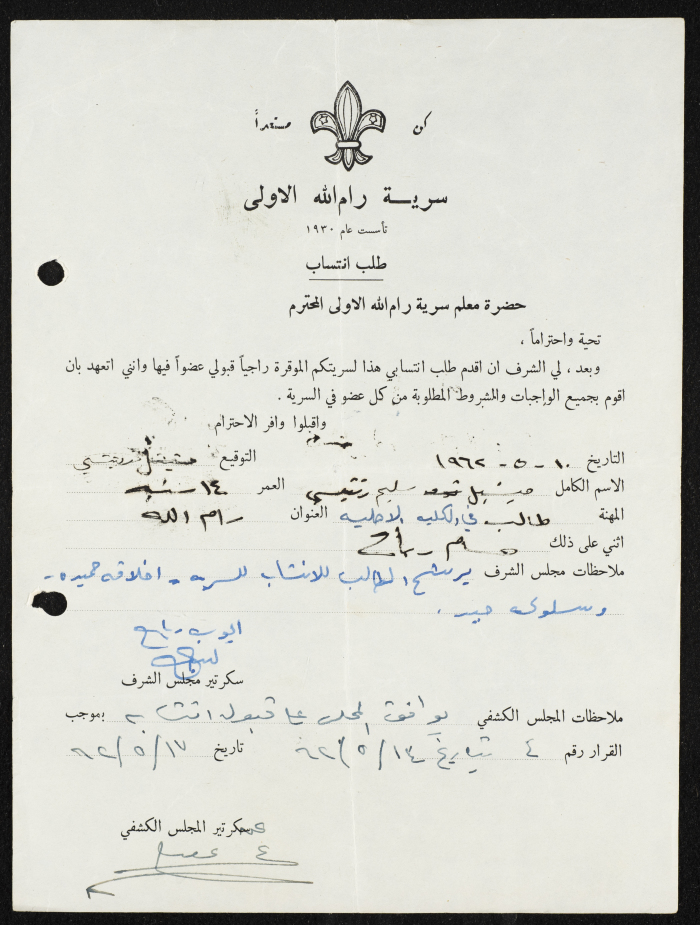 كن مستعداً
سريـة رام‌الله الاولى
تأسست عام ١٩٣٠
طلب انتساب
حضرة معلم سرية رام‌الله الاولى المحترم
تحية واحتراماً ،
وبعد ، لي الشرف ان اقدم طلب انتسابي هذا لسريتكم الموقرة راجياً قبولي عضواً فيها وانني اتعهد بان
اقوم بجميع الواجبات والمشروط المطلوبة من كل عضو في السرية .
واقبلوا وافر الاحترام
التاريخ ١٠ - ٥ - ١٩٦٢ التوقيع
الاسم الكامل ميشيل سليم العمر ١٤ سنه
المهنة طالب في الكليه الاهليه العنوان رام الله
اثني على ذلك
ملاحظات مجلس الشرف يرشح الطالب للانتساب للسريه - اخلاقه حميده -
وسلوكه جيد .
ايوب رباح
سكرتير مجلس الشرف
ملاحظات المجلس الكشفي يوافق المجلس على قبول انتسابه بموجب
القرار رقم ٤ بتاريخ ١٤/٥/٦٢ تاريخ ١٧/٥/٦٢
سكرتير المجلس الكشفي